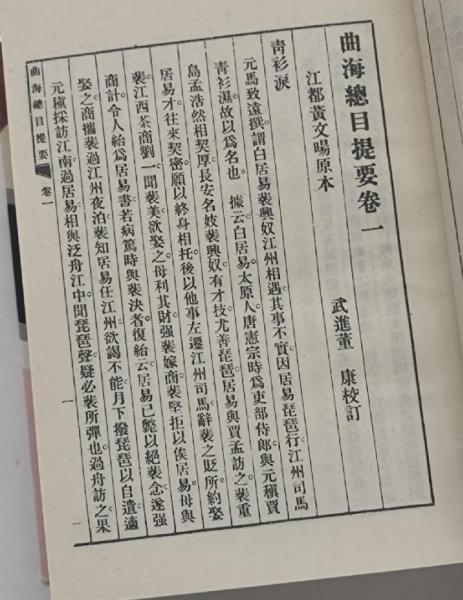 曲海總目提要卷一
江都黃文暘原本
武進董　康校訂
青衫淚
元馬致遠撰。謂白居易裴興奴江州相遇。其事不實。因居易琵琶行江州司馬
青衫濕。故以爲名也。　據云。白居易。太原人。唐憲宗時爲吏部侍郎。與元稹賈
島孟浩然相契厚。長安名妓裴興奴。有才技。尤善琵琶。居易與賈孟訪之。裴重
居易才。往來契密。願以終身相托。後以他事左遷江州司馬。辭裴之貶所。約娶
裴。江西茶商劉一。聞裴美。欲娶之。母利其財。强裴嫁商。裴堅拒以俟居易。母與
商計。令人紿爲居易書。若病篤時與裴決者。復紿云居易已斃。以絕裴念。遂强
娶之。商攜裴過江州。夜泊。裴知居易任江州。欲謁不能。月下撥琵琶以自遣。適
元稹採訪江南。過居易。相與泛舟江中。聞琵琶聲。疑必裴所彈也。過舟訪之。果
曲海總目提要　卷一
一